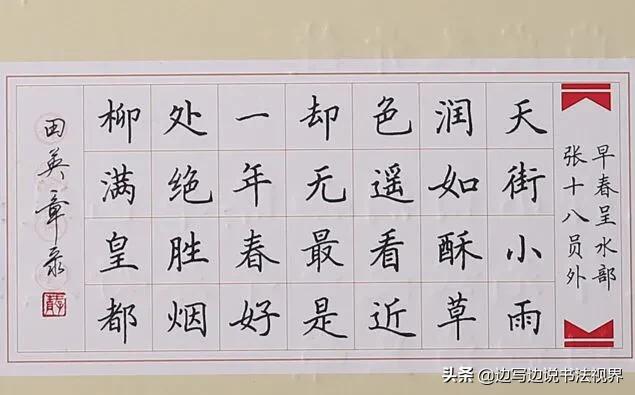 早春呈水部
张十八员外
天街小雨
润如酥草
色遥看近
却无最是
一年春好
处绝胜烟
柳满皇都
田英章录
头条 @边写边说书法视界